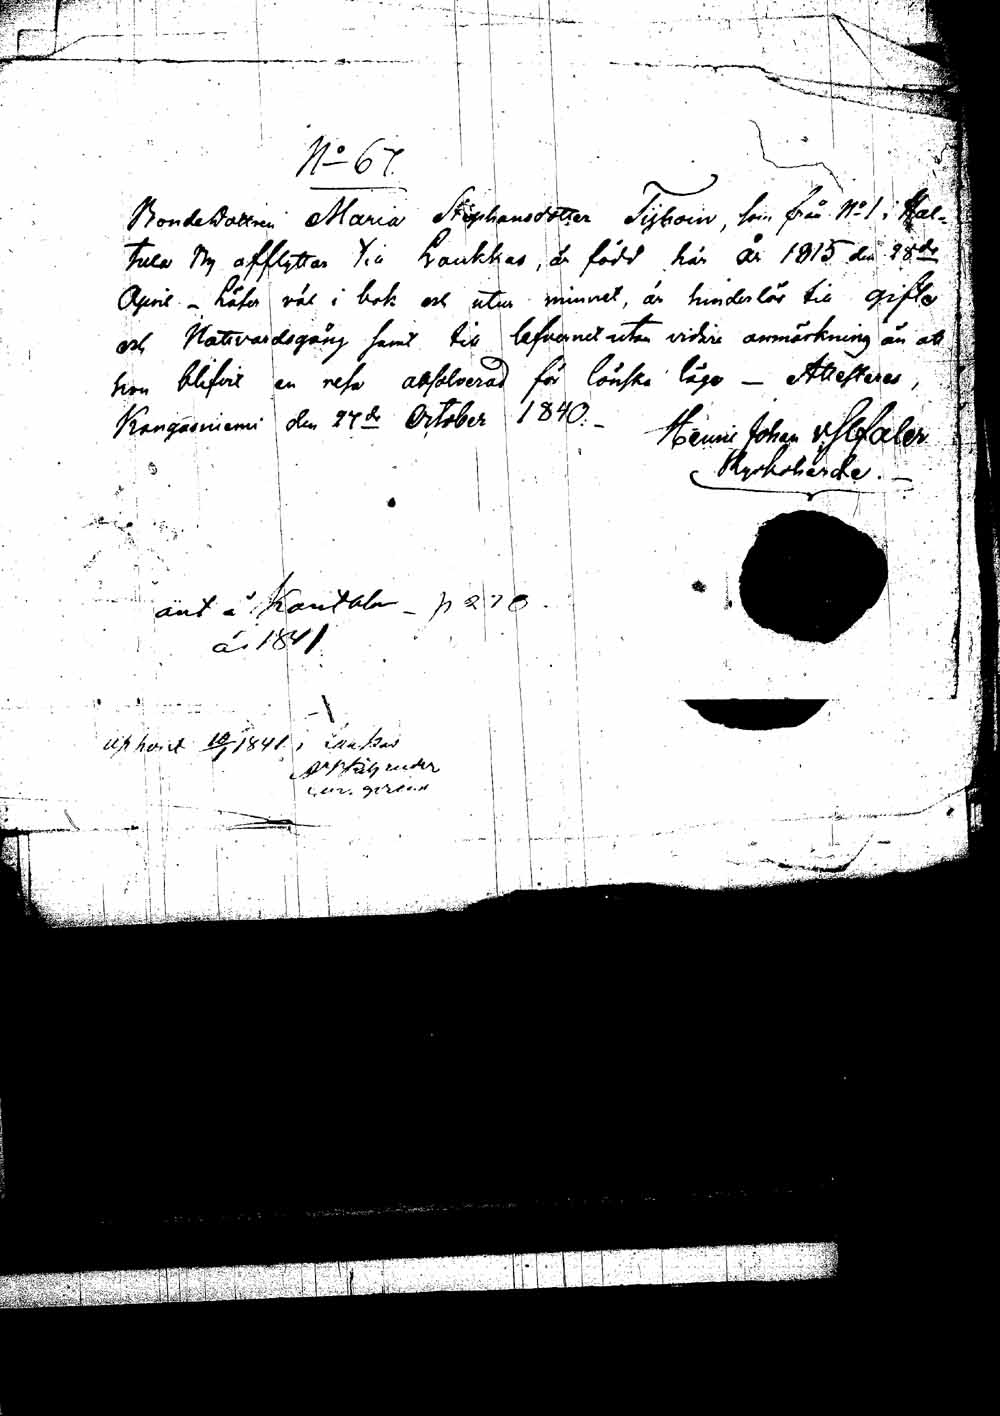 No 67.
Bondedottren Maria Stephansdotter Tyhoin, som från No 1 i Hal-
tula By afflyttar til Laukkas, är född här år 1815 den 28de
April – Läser väl i bok och utur minnet, är hinderlös til gifte
och Nattvardsgång samt til lefvernet utan vidare anmärkning än att
hon blifvit en resa absolverad för lönska läge – Attesteras,
Kangasniemi den 27de October 1840. –
Johan
Kyrkoherde. –
ant å – p 270.
år 1841
1841 i Laukas